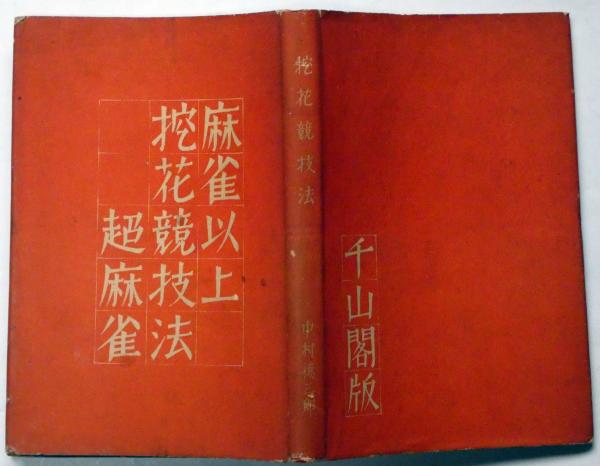 麻雀以上
挖花競技法
超麻雀
挖花競技法
中村徳三郎
千山閣版